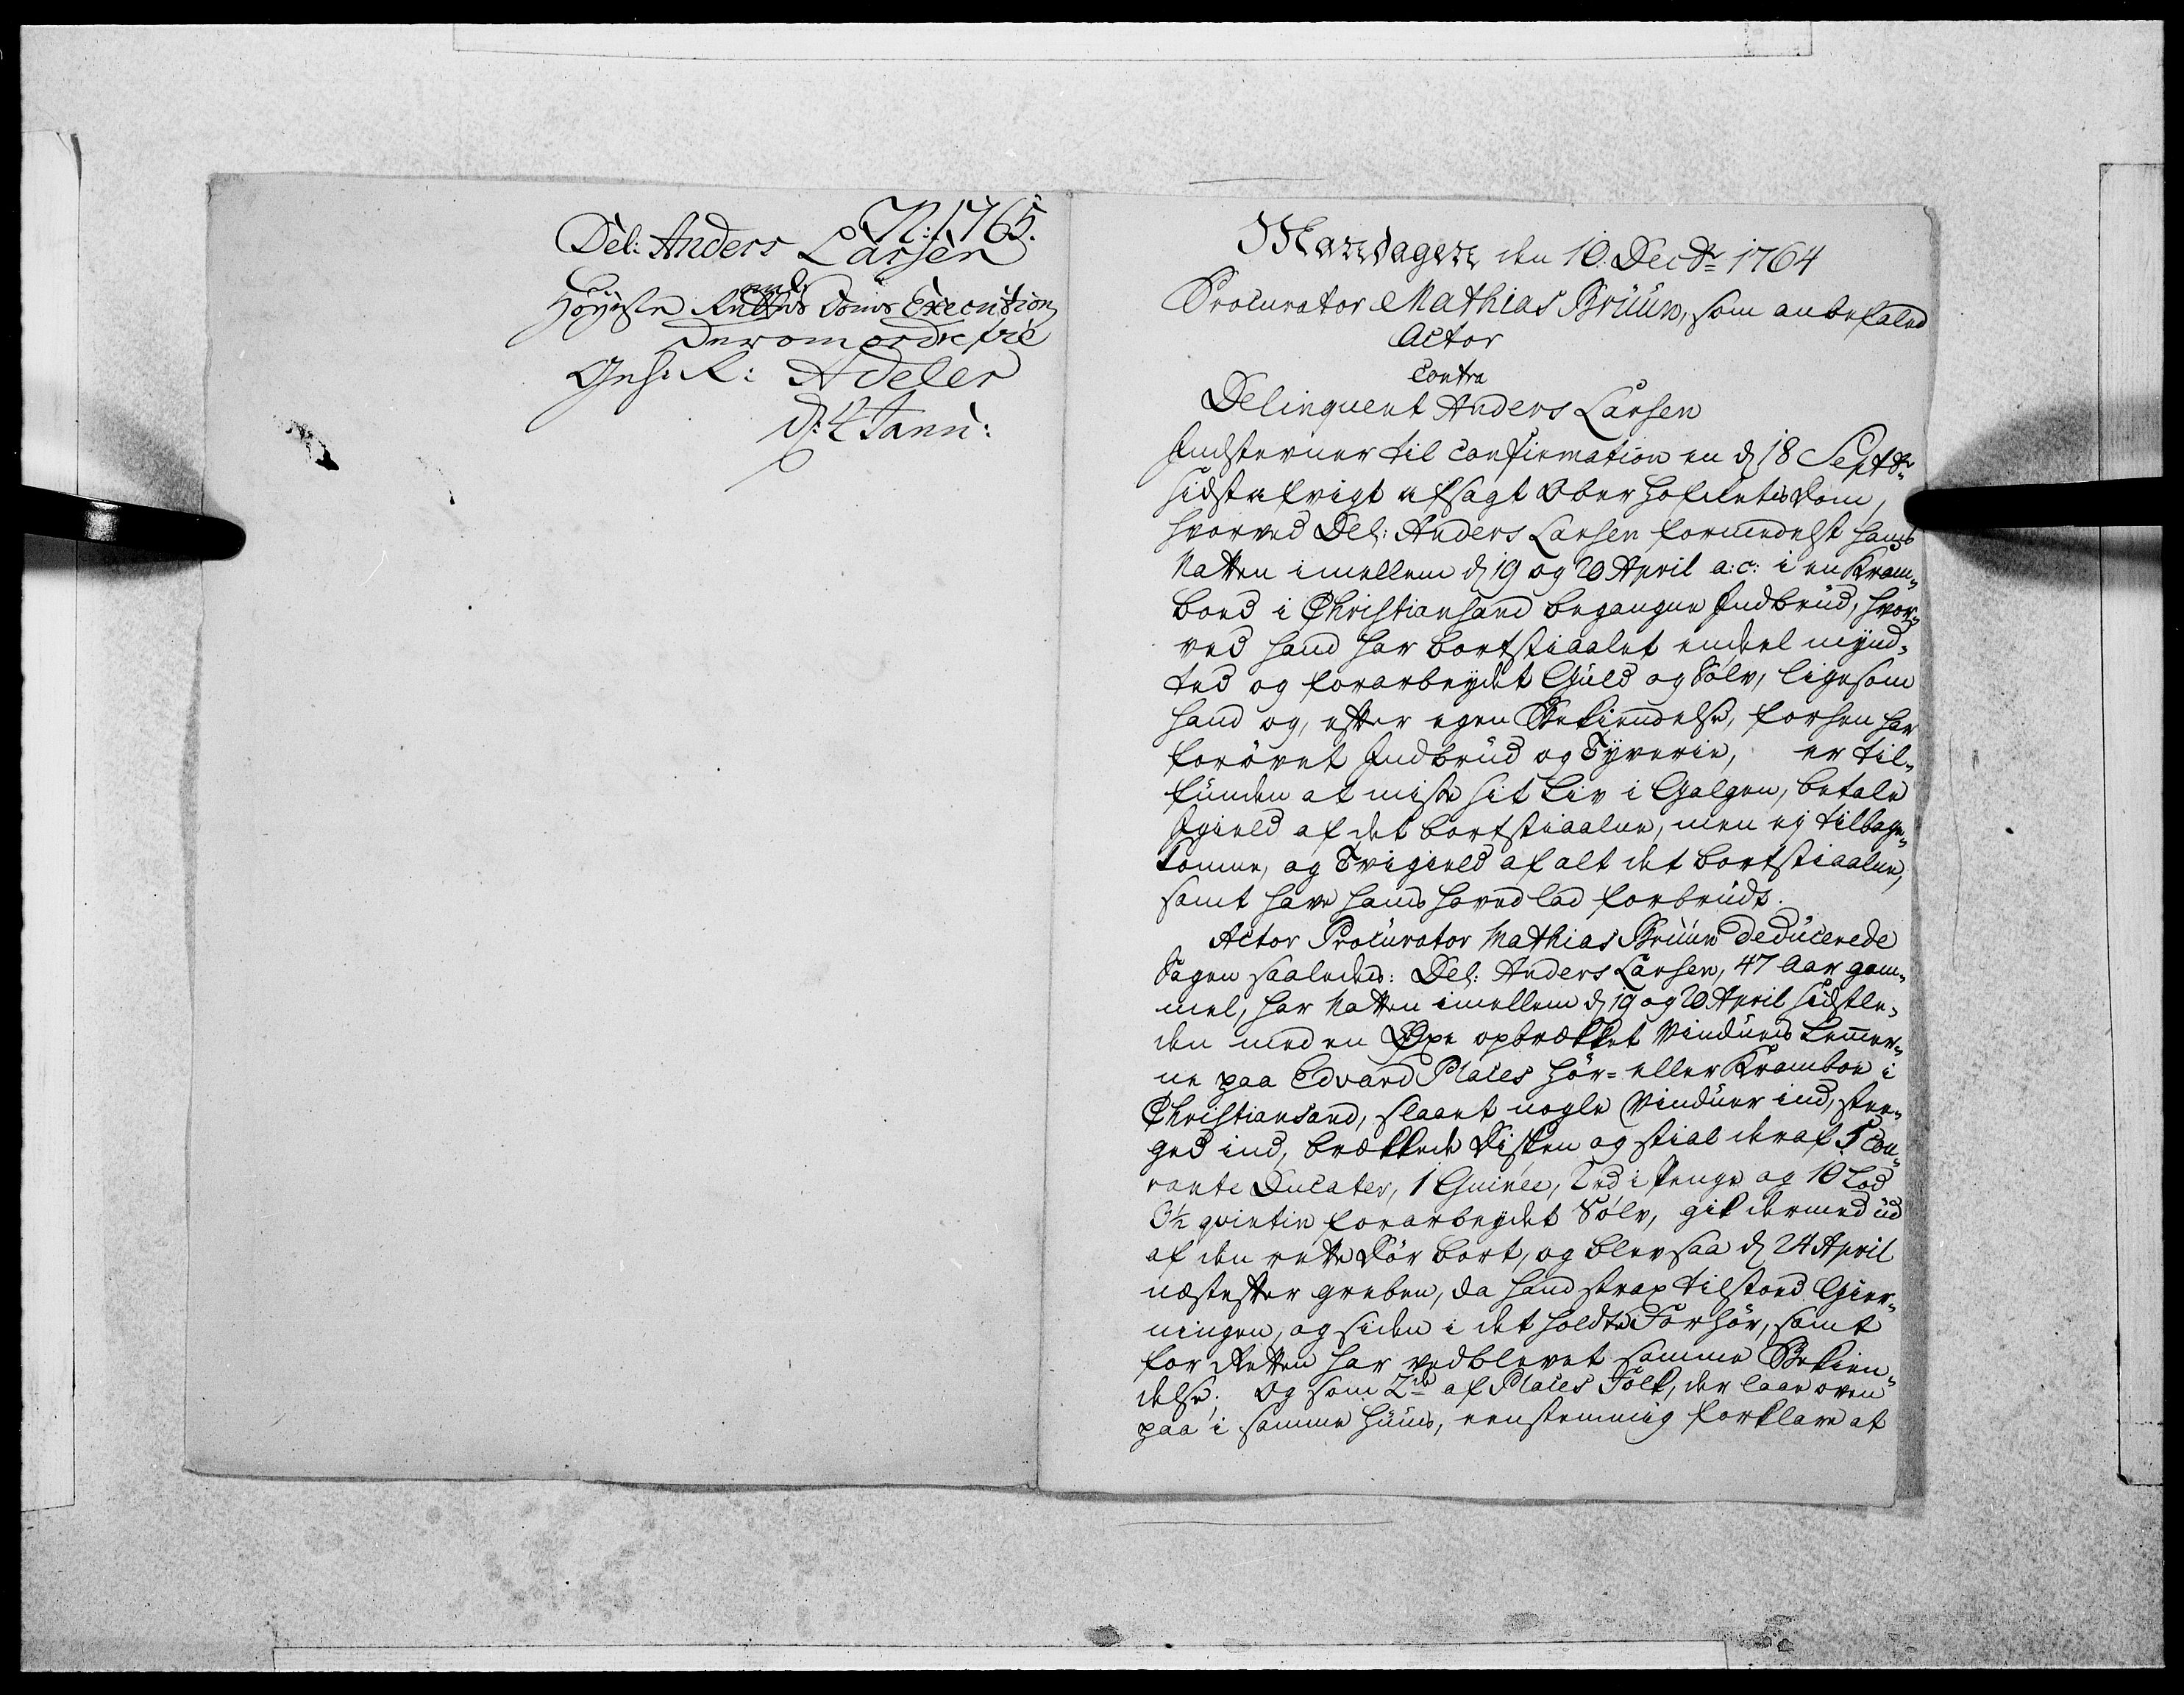 N: 1765.
Del: Anders Larsen
Høyeste Rettens Doms Execution
derom ordre til
Geh: R: Adeler
d: 4 Janu:
Mandagen den 10. Decbr 1764
Procurator Mathias Brüün, som anbefaled
Actor
Contra
Delinquent Anders Larsen
Indstevner til Confirmation en d 18 Septbr
sidst afvigt afsagt Oberhofretts Dom,
hvorved Del: Anders Larsen formedelst hans
Natten imellem d 19 og 20 April a: c: i en Kram-
boed i Christiansand begangne Indbrüd, hvor-
ved hand har bortstiaalet endeel mynd-
ted og forarbeydet Guld og Sølv, ligesom
hand og, efter egen Bekiendelse, forhen har
forøvet Indbrüd og Tyverie, er til-
fünden at miste sit Liv i Galgen, betale
Igield af det bortstiaalne, men ej tilbage-
komne, og Tvigield af alt det bortstiaalne,
samt have hans hoved lod forbrudt.
Actor Procurator Mathias Brüün deducerede
Sagen saaledes: Del: Anders Larsen, 47 Aar gam-
mel, har Natten imellem d 19 og 20 April sidstle-
den med en Øxe opbrækket Vinduets Lemmer-
ne paa Edvard Places Hør- eller Kramboe i
Christiansand, slaaet nogle Vinduer ind, stee-
ged ind, brækkede Disken og stial deraf 5 Cou-
rante Ducater, 1 Guinée, 2 rd i Penge og 10 Lod
3½ qvintin forarbeydet Sølv, gik dermed üd
af den rette Dør bort, og blev saa d 24 April
næstefter greben, da hand strax tilstoed Gier-
ningen, og siden i det holdte Forhør, samt
for Retten har vedblevet samme Bekien-
delse; Og som 2de af Places Folk, der laae oven
paa i samme Hüüs, eenstemmig forklare at